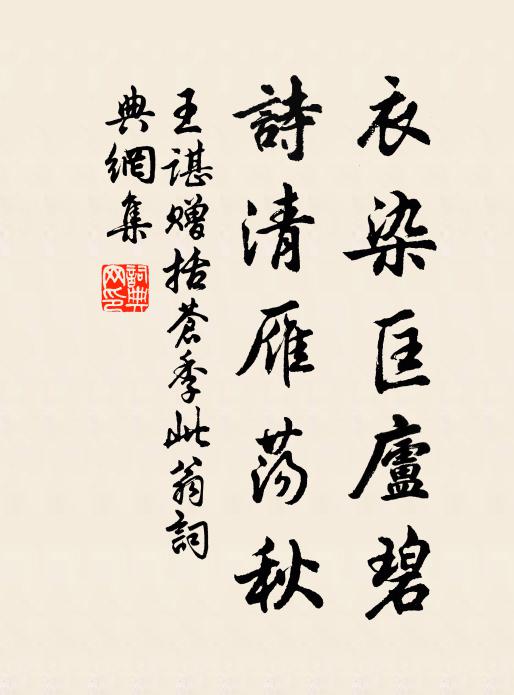 衣染匡廬碧
詩清雁蕩秋
王諶贈括蒼季此翁詞
典網集
詞典網印